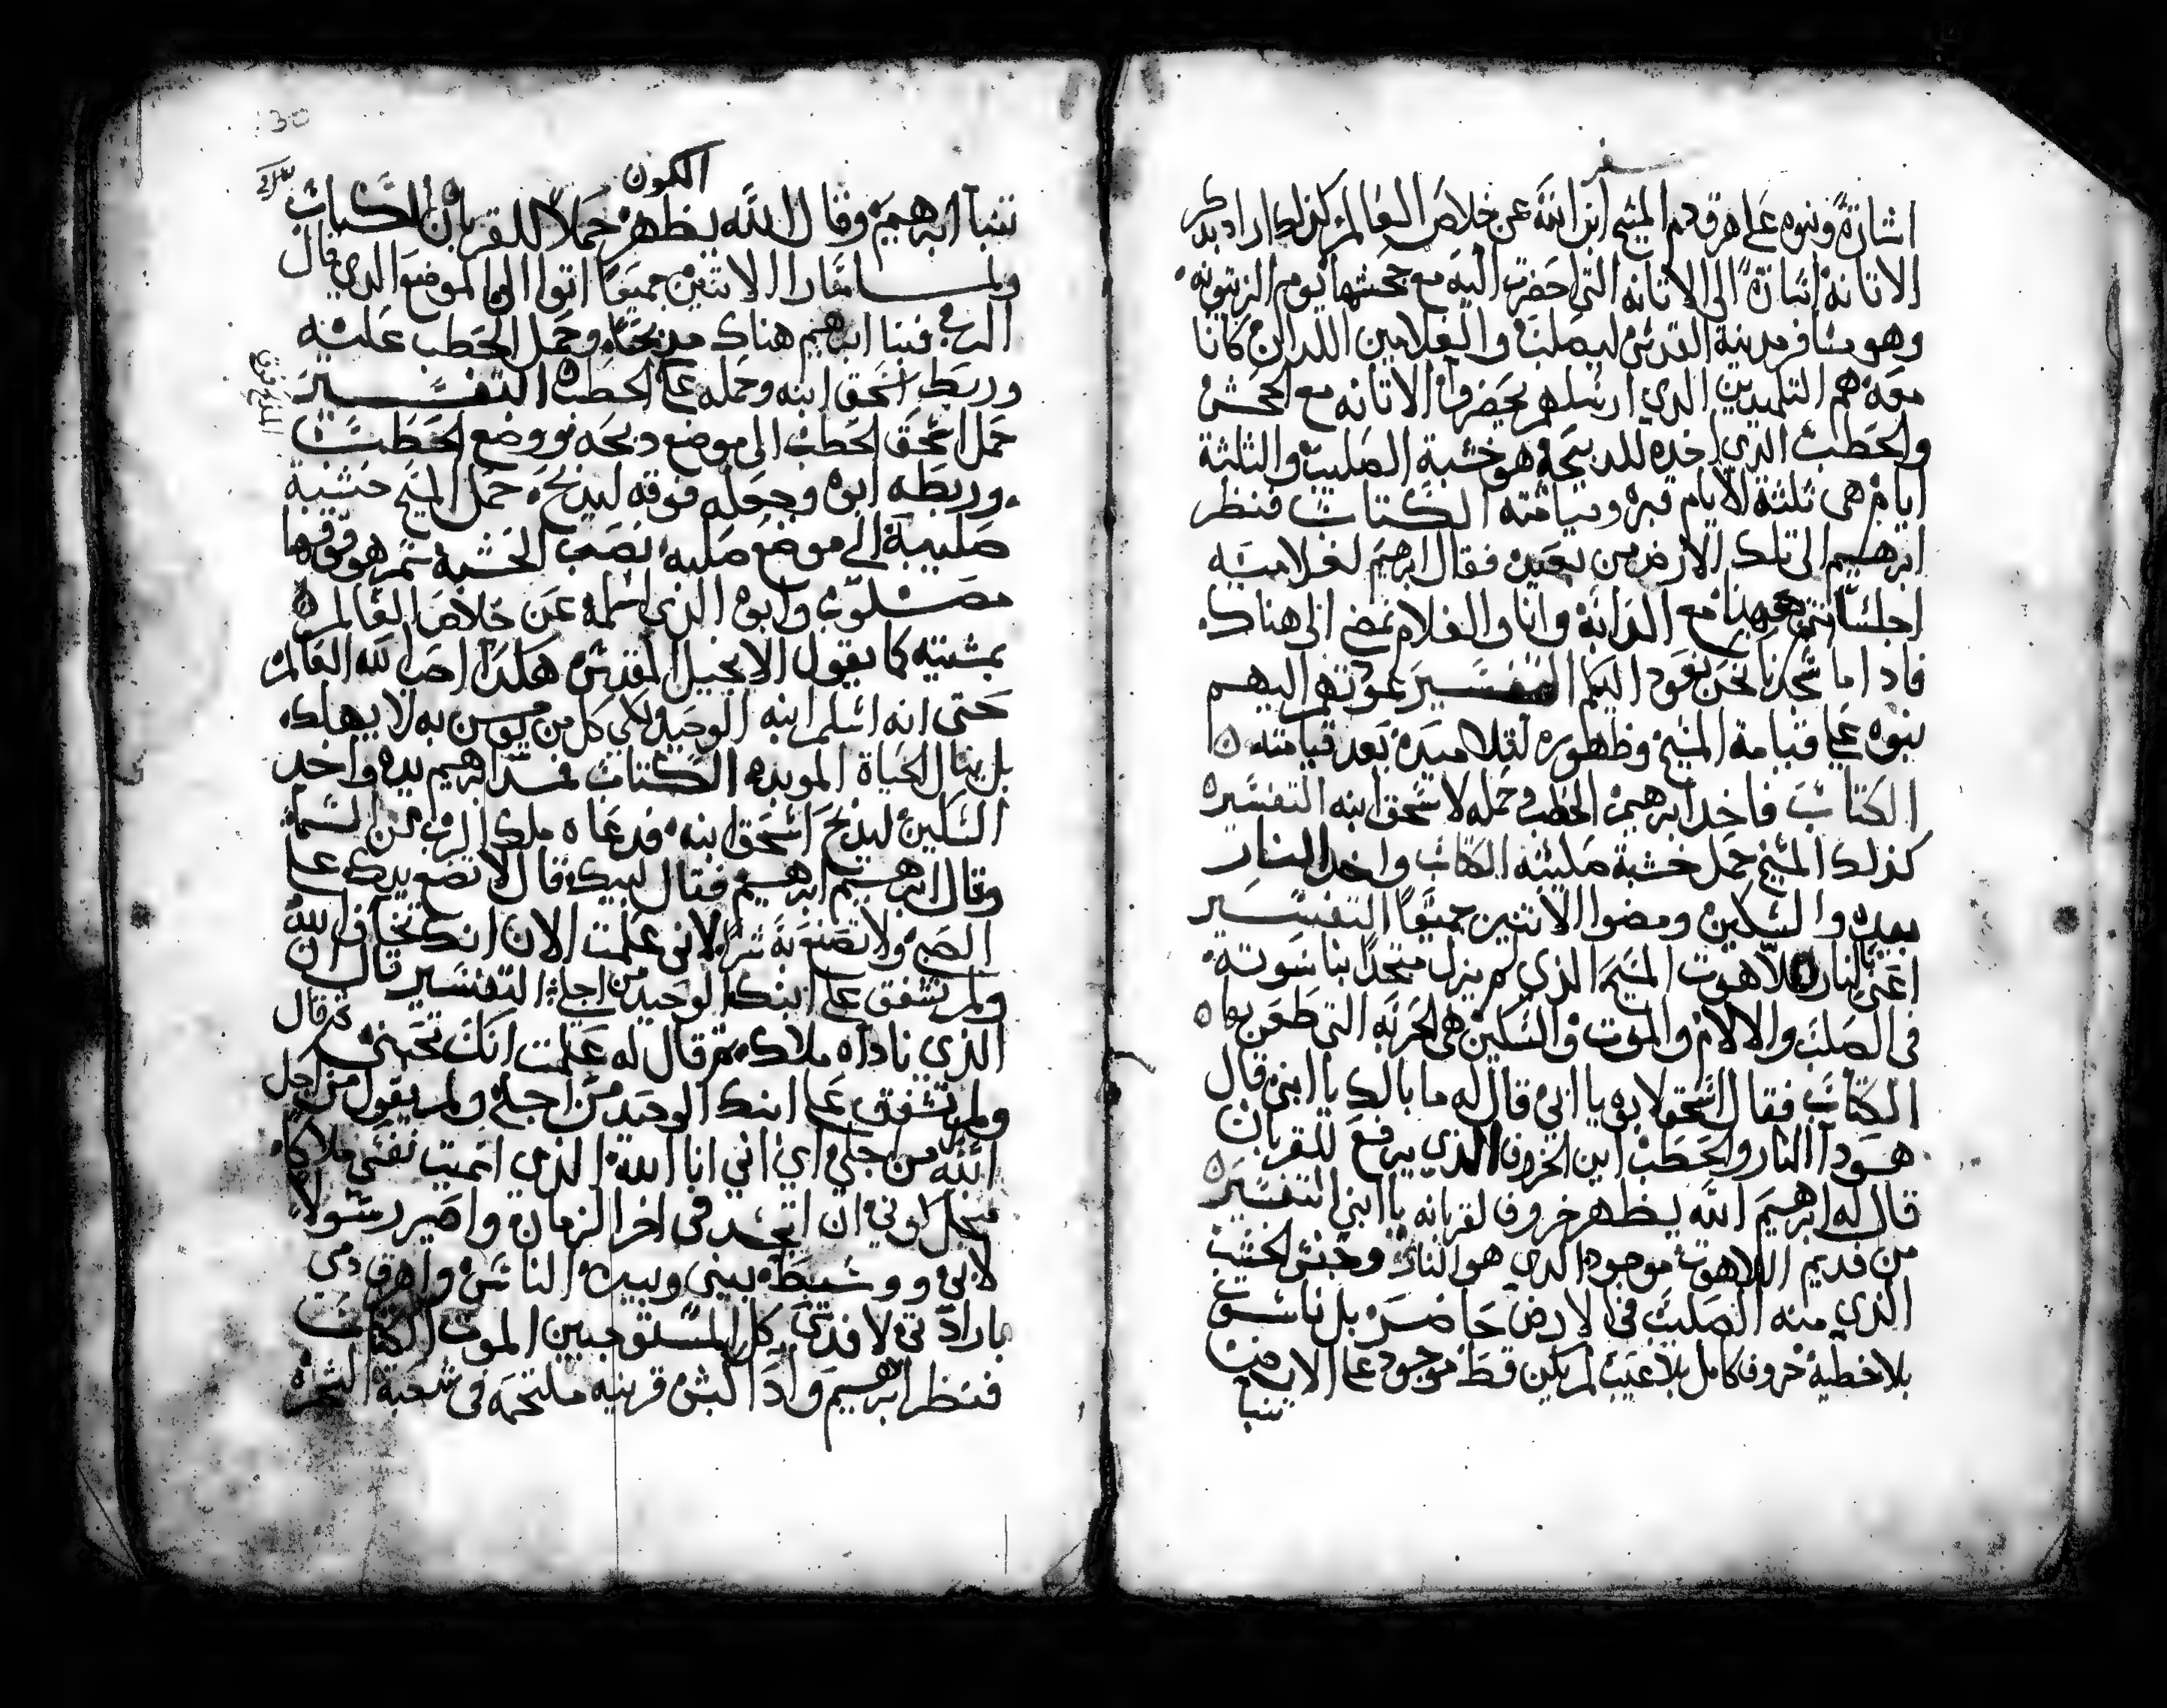 سفر
اشارة ونبوه على اهرق دم المسيح ابن الله عن خلاص العالم كذلك اراد بذكر
الاتانه اشارة الى الاتانه التي احضرت اليه مع جحشها يوم الزيتونه
وهو مسافر مدينة القدس ليصلب والغلامين اللدان كانا
معه هم التلميدين الدي ارسلهم يحضروا الاتانه مع الجحش
والحطب الدي اخده للدبيحة هو خشبة الصليب والتلتة
ايام هى تلتة الايام قبره وقيامته الكتاب فنظر
ابرهيم الى تلك الارض من بعيد فقال ابرهيم لغلاميه
اجلسا انتم ههنا مع الدابه وانا والغلام نمضي الى هناك
فادا ما سجدنا نحن نعود اليكم التفسير عودتهم اليهم
نبوه على قيامة المسيح وظهوره لتلاميده بعد قيامته
الكتاب فاخد ابرهيم الحطب وحمله لاسحق ابنه التفسير
كذلك المسيح حمل خشبة صليبه الكتاب واخد النار
بيده والسكين ومضوا الاتنين جميعا التفسير
اعني بالنار لاهوت المسيح الذي لم يزل متحدا بناسوته
فى الصلب والالام والموت والسكين هى الحربه التي طعن بها
الكتاب فقال اسحق لابوه يا ابي قال له ما بالك يا ابني قال
هودا النار والحطب اين الخروف الدي يرفع للقربان
قال له ابرهيم الله يظهر خروف لقربانه يا ابني التفسير
من قديم اللاهوت موجود الدي هو النار وجنس الخشب
الذي منه الصليب في الارض حاضر بل ناسوت
بلا خطية خروف كامل بلا عيب لم يكن قط موجود على الارض
تنبا
الكون
تنبا ابرهيم وقال الله يظهر حملا للقربان الكتاب
ولما سارا الاتنين جميعا اتوا الى الموضع الدي قال
الرب فبنا ابرهيم هناك مدبحا وحمل الحطب عليه
وربط اسحق ابنه وحمله على الحطب التفسير
حمل اسحق الحطب الى موضع دبحه ووضع الحطب
وربطه ابوه وجعله فوقه ليدبحه حمل المسيح خشبة
صليبه الى موضع صلبه نصب الخشبة تم هو فوقها
مصلوب وابوه الذي اسلمه عن خلاص العالم
بمشيته كما يقول الانجيل المقدس هكدا احب الله العالم
حتى انه اسلم ابنه الوحيد لكي كل من يومن به لا يهلك
بل ينال الحياة الموبده الكتاب فمد ابرهيم يده واخد
السكين ليدبح اسحق ابنه فدعاه ملاك الرب من السما
وقال ابرهيم ابرهيم فقال لبيك قال لا تضع يدك على
الصبي ولا تصنع به شرا لاني علمت الان انك تخاف الله
ولم تشفق على ابنك الوحيد من اجلي التفسير قال ان
الذي ناداه ملاك تم قال له علمت انك تحبني تم قال
ولم تشفق على ابنك الوحيد من اجلي ولم يقول من اجل
الله من اجلي اي اني انا الله الذي اسميت نفسي ملاكا
من اجل اني ان اتجسد فى اخر الزمان واصير رسولا
لابي ووسيط بيني وبين الناس واهرق دمى
بارادتي لافدي كل المستوجبين الموت الكتاب
فنظر ابرهيم وادا كبش قرنيه ملتحمه فى شعبة الشجرة